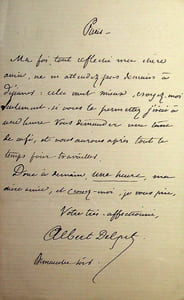 Paris –
Ma foi, tout réfléchi ma chère
amie, ne m'attendez pas demain à
déjeuner : cela vaut mieux, croyez-moi
seulement, si vous le permettez j'irai à
une heure vous demander une tasse
de café, et nous aurons après tout le
temps pour travailler.
Donc à demain, une heure, ma
chère amie, et croyez-moi, je vous prie,
Votre très affectionné,
Albert Delpit
Dimanche soir